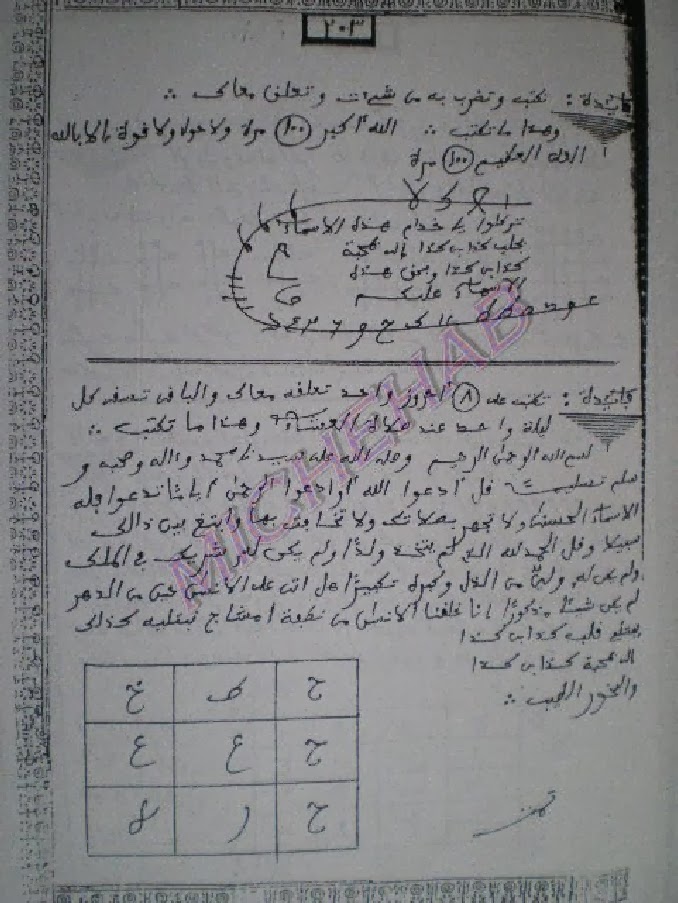 ٢٠٣
فايدة : تكتب وتضرب به من شئت وتعلق معاك ∴
وهذا ما تكتب ∴ الله أكبر ١٠٠ مرة ولا حول ولا قوة إلا بالله
العظيم ١٠٠ مرة
توكلوا يا خدام هذه الأسماء
بجلب كذا بن كذا إلى محبة
كذا بن كذا وبحق هذه
الأسماء عليكم
فايدة : تكتب على ٨ واحد تعلقه معاك والباقي كل
ليلة واحد عند صلاة العشاء وهذا ما تكتب ∴
بسم الله الرحمن الرحيم وصلى الله على سيدنا محمد وآله وصحبه و
سلم تسليما قل ادعوا الله أو ادعوا الرحمن أيا ما تدعوا فله
الأسماء الحسنى ولا تجهر بصلاتك ولا تخافت بها وابتغ بين ذالك
سبيلا وقل الحمد لله الذي لم يتخذ ولدًا ولم يكن له شريك في الملك
ولم يكن له ولي من الذل وكبره تكبيرًا هل أتى على الإنسان حين من الدهر
لم يكن شيئًا مذكورًا إنا خلقنا الإنسان من نطفة أمشاج نبتليه كذالك
قلب كذا بن كذا
إلى محبة كذا بن كذا
والبخور الطيب ∴
ح
ح ع ع
ح ر
MICHEHAB